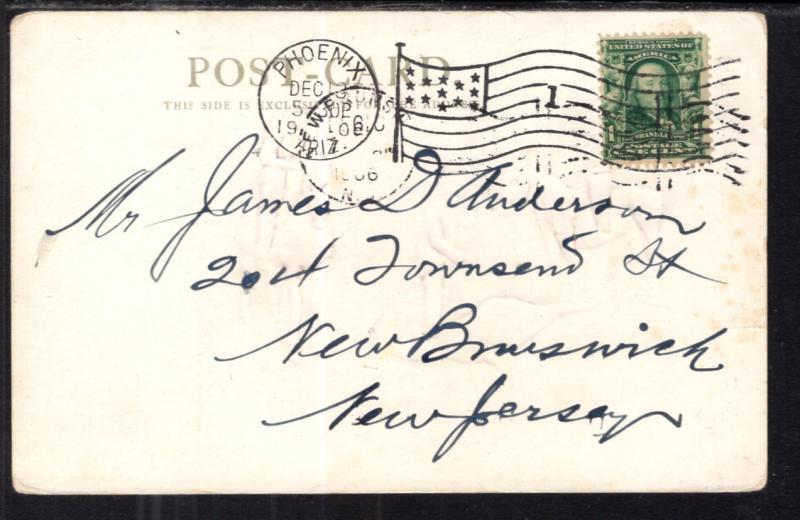 POST-CARD
THIS SIDE IS EXCLUSIVELY FOR THE ADDRESS
PHOENIX
DEC
5
1906
ARIZ.
1
SERIES 1902
UNITED STATES OF
AMERICA
FRANKLIN
POSTAGE
Mr James D Anderson
204 Townsend St
New Brunswick
New Jersey